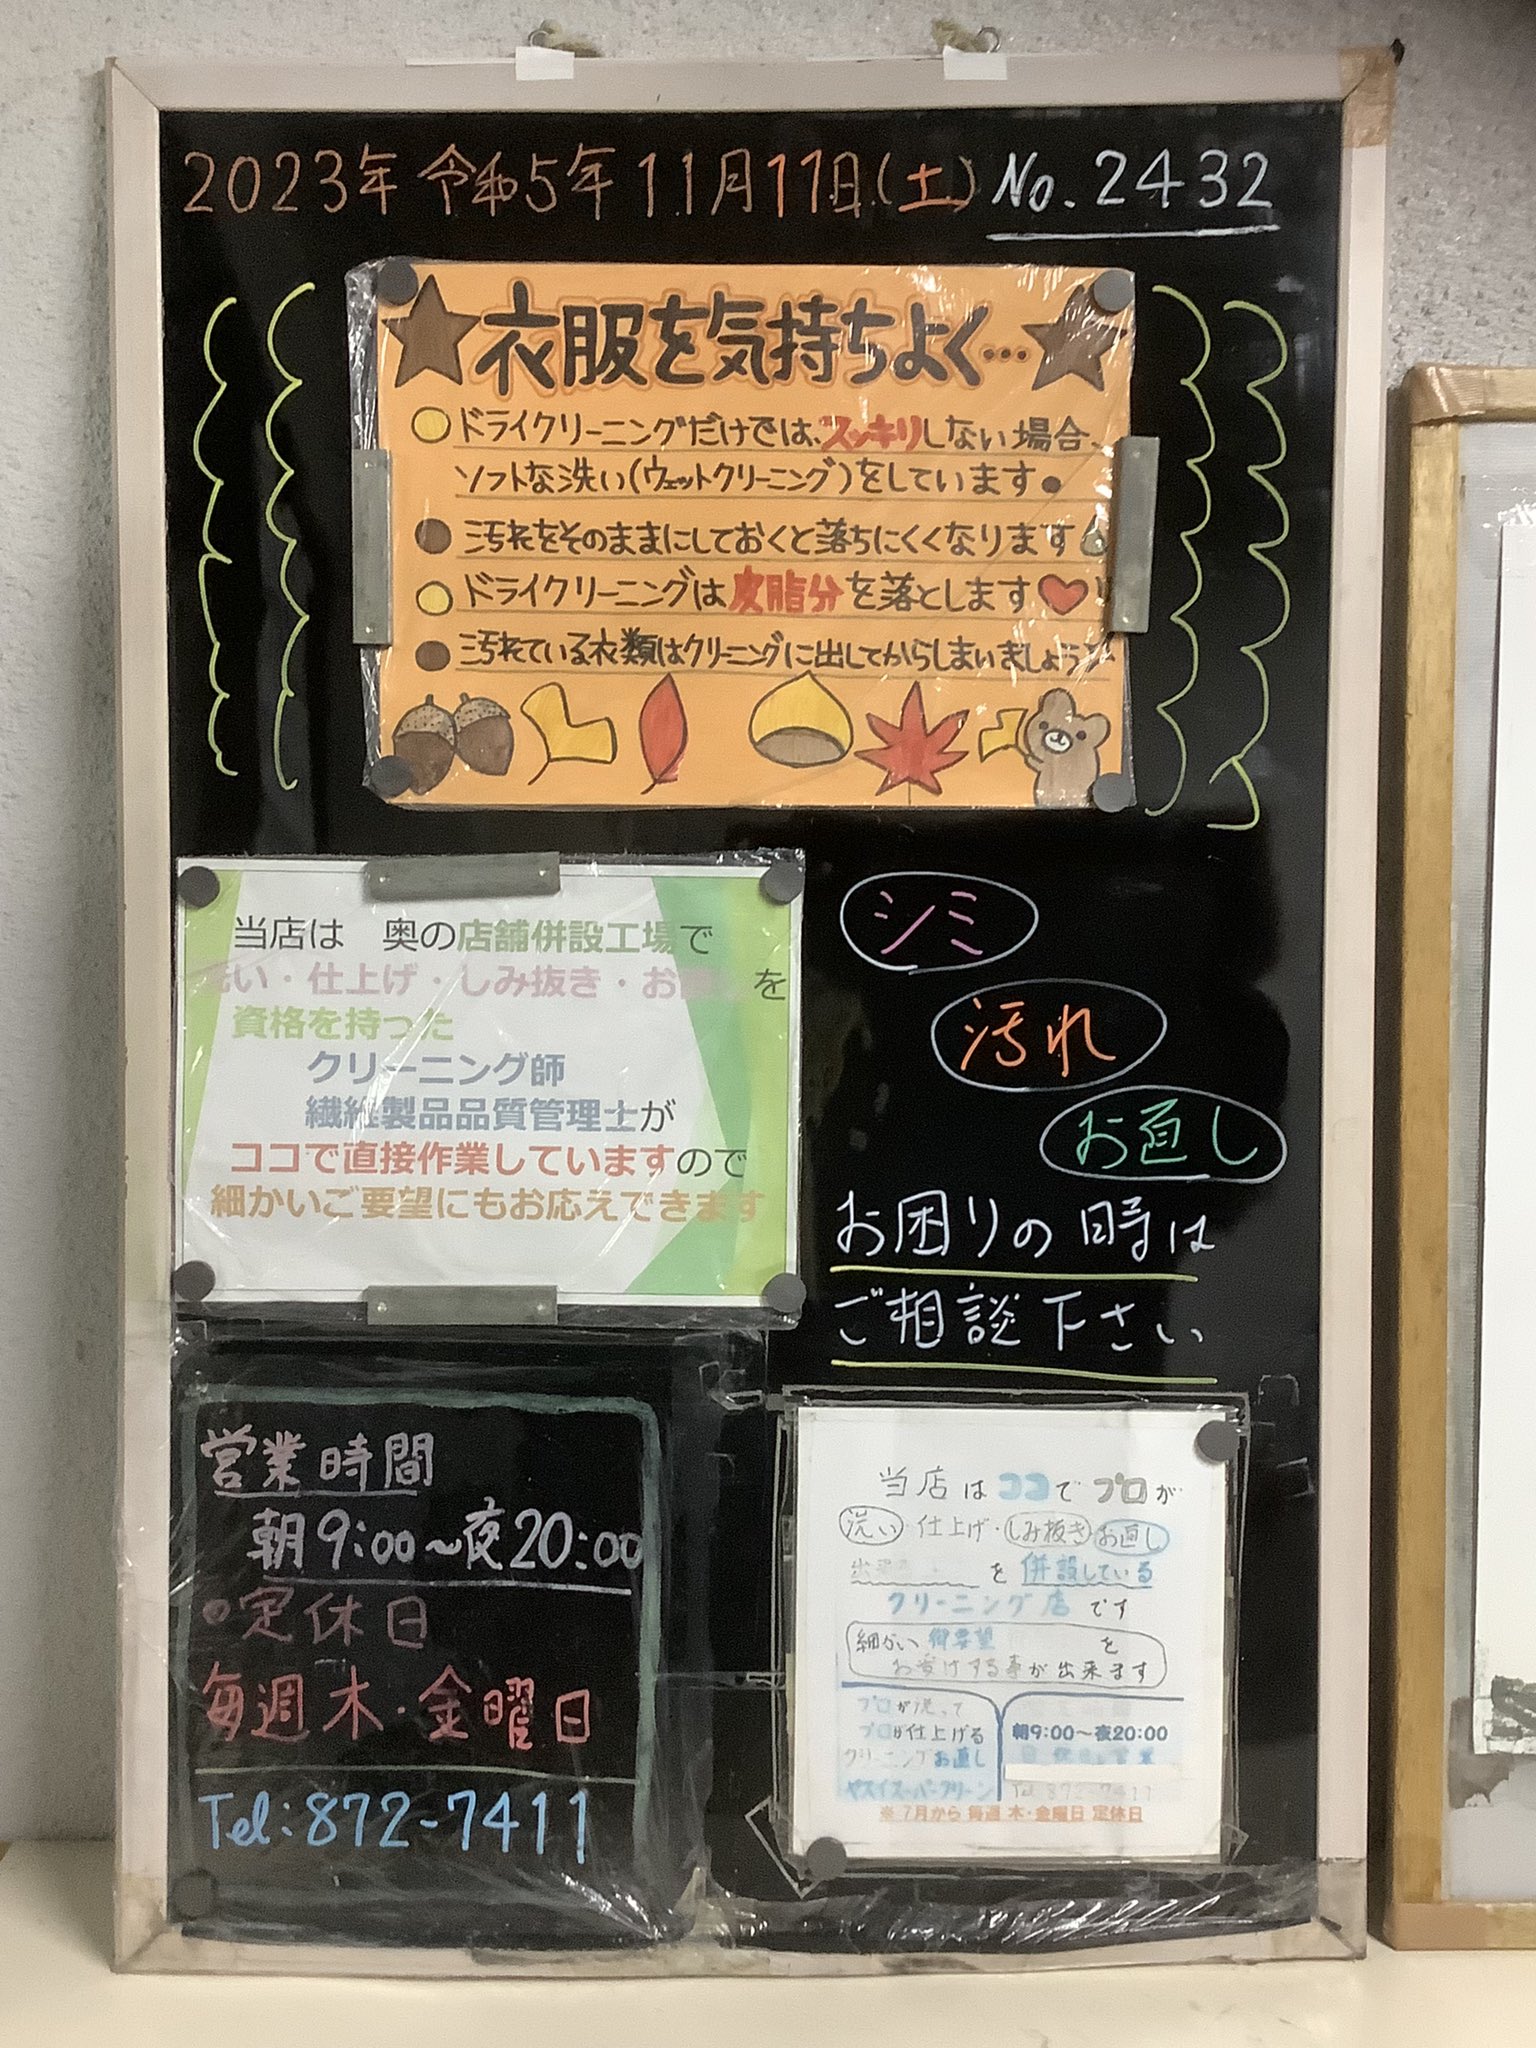 2023年 令和5年11月11日(土) No.2432
★衣服を気持ちよく…★
ドライクリーニングだけでは、スッキリしない場合、
ソフトな洗い(ウェットクリーニング)をしています。
汚れをそのままにしておくと落ちにくくなります
ドライクリーニングは皮脂分を落とします♥!!
汚れている衣類はクリーニングに出してからしまいましょう
当店は 奥の店舗併設工場で
洗い・仕上げ・しみ抜き・お直しを
資格を持った
クリーニング師
繊維製品品質管理士が
ココで直接作業していますので
細かいご要望にもお応えできます
シミ
汚れ
お直し
お困りの時は
ご相談下さい
営業時間
朝9:00~夜20:00
定休日
毎週木・金曜日
Tel:872-7411
当店はココでプロが
洗い 仕上げ・しみ抜き お直し
を併設している
クリーニング店です
細かい御要望を
お受けする事が出来ます
プロが洗って
プロが仕上げる
クリーニングお直し
ヤスイスーパークリーン
朝9:00~夜20:00
Tel 872-7411
※7月から 毎週 木・金曜日 定休日